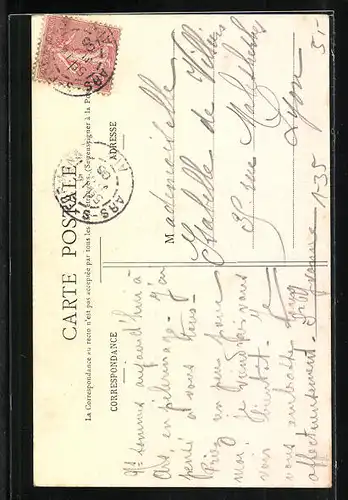 CARTE POSTALE
La Correspondance au recto n'est pas acceptée par tous les pays étrangers. (Se renseigner à la Poste)
CORRESPONDANCE
ADRESSE
Ns sommes aujourd'hui à
Ars, en pèlerinage. J'ai
pensé à vous tous.
Priez un peu pour
moi. Je viendrai vous
voir bientôt. Je
vous embrasse
affectueusement.
Mademoiselle
Isabelle de Villiers
35 rue Malesherbes
Lyon
ARS
1-35
3,-